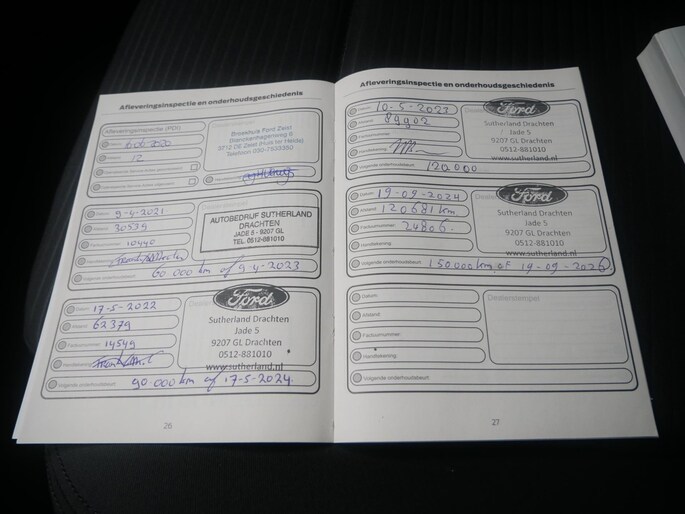 Afleveringsinspectie en onderhoudsgeschiedenis
Afleveringsinspectie (PDI)
Datum:
2020
12
Broekhuis Ford Zeist
3712 DE Zeist (Huis ter Heide)
Datum: 9-4-2021
30539
10440
AUTOBEDRIJF SUTHERLAND
DRACHTEN
JADE 5 - 9207 GL
TEL. 0512-881010
60.000 km of 9-4-2023
Datum: 17-5-2022
Kmstand: 62379
Factuurnummer: 14549
Handtekening:
Ford
Sutherland Drachten
Jade 5
9207 GL Drachten
0512-881010
www.sutherland.nl
Volgende onderhoudsbeurt: 90.000 km of 17-5-2024.
26
Afleveringsinspectie en onderhoudsgeschiedenis
Datum: 10-5-2023
Kmstand: 89902
Factuurnummer:
Handtekening:
Ford
Sutherland Drachten
Jade 5
9207 GL Drachten
0512-881010
www.sutherland.nl
Volgende onderhoudsbeurt: 120.000
Datum: 19-09-2024
Kmstand: 120681 km
Factuurnummer: 24806.
Handtekening:
Ford
Sutherland Drachten
Jade 5
9207 GL Drachten
0512-881010
www.sutherland.nl
Volgende onderhoudsbeurt: 150.000 km of 19-09-2026
Datum:
Kmstand:
Factuurnummer:
Handtekening:
Dealerstempel
Volgende onderhoudsbeurt:
27